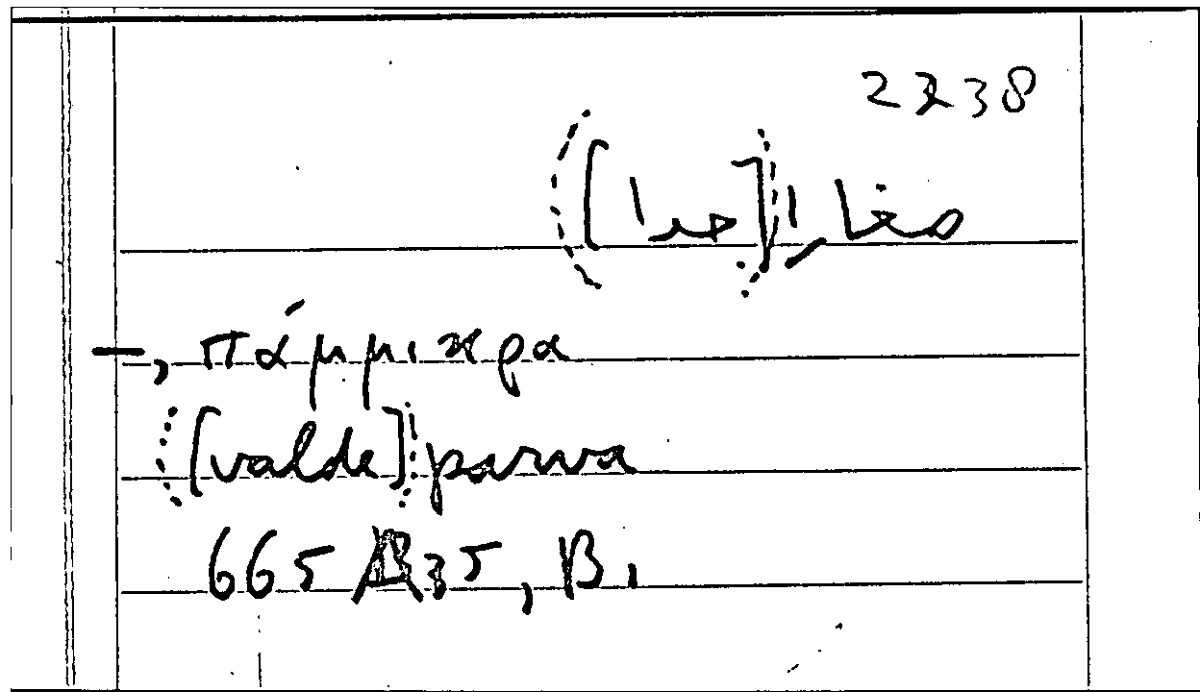 2238
صغارا ([جدا])
—, πάμμικρα
([valde]) parva
665 A 35, B 1